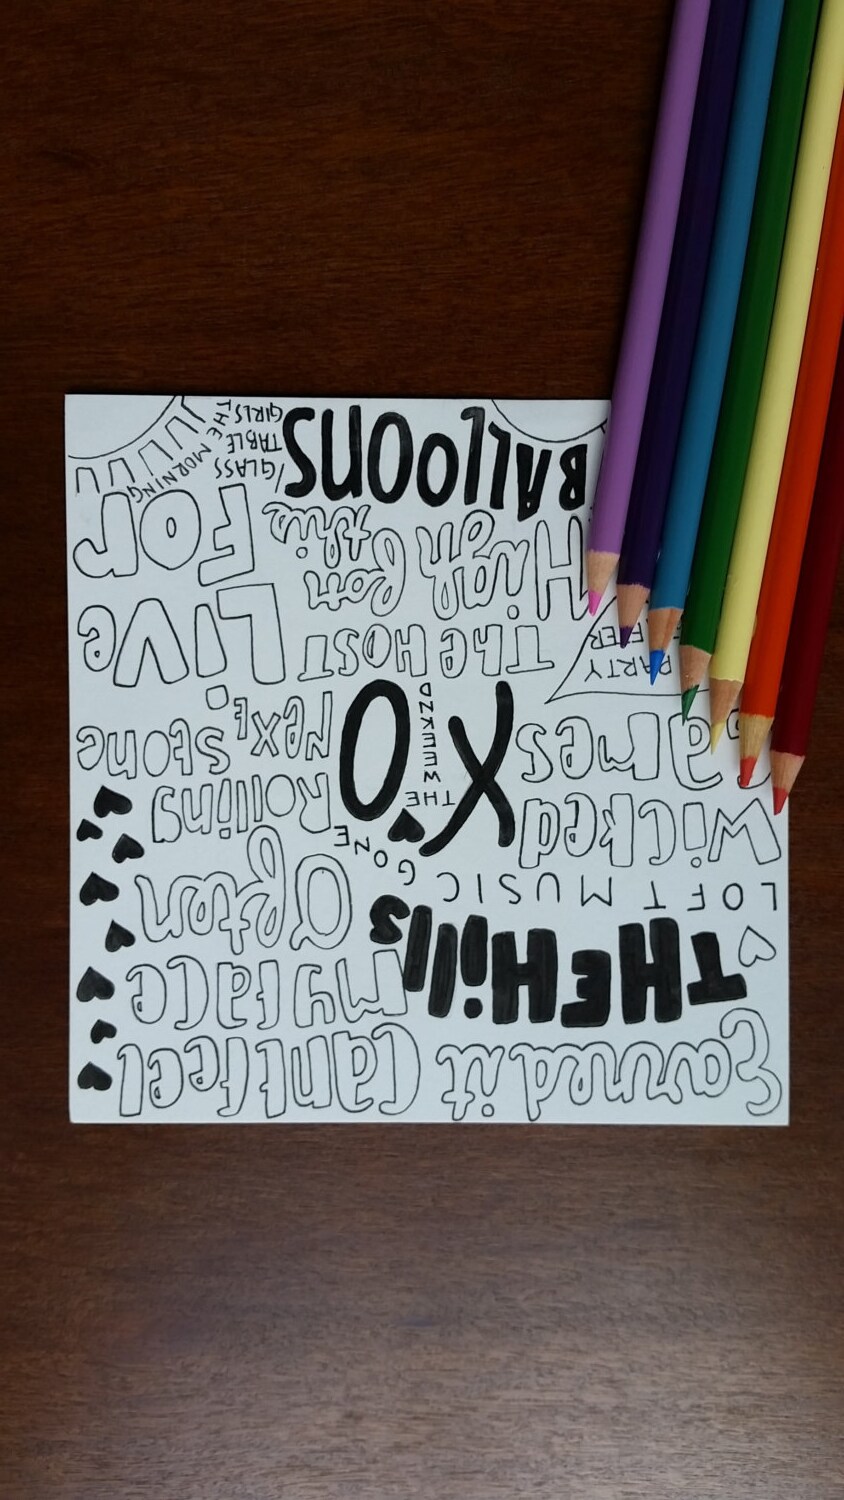 Earned it
Cant feel
my face
THE Hills
Often
LOFT MUSIC
GONE
Wicked
Games
XO
THE WEEKND
Rolling
Stone
Next
PARTY
The HOST
Live
For
High for
this
BALLOONS
/GLASS
TABLE
GIRLS
THE MORNING